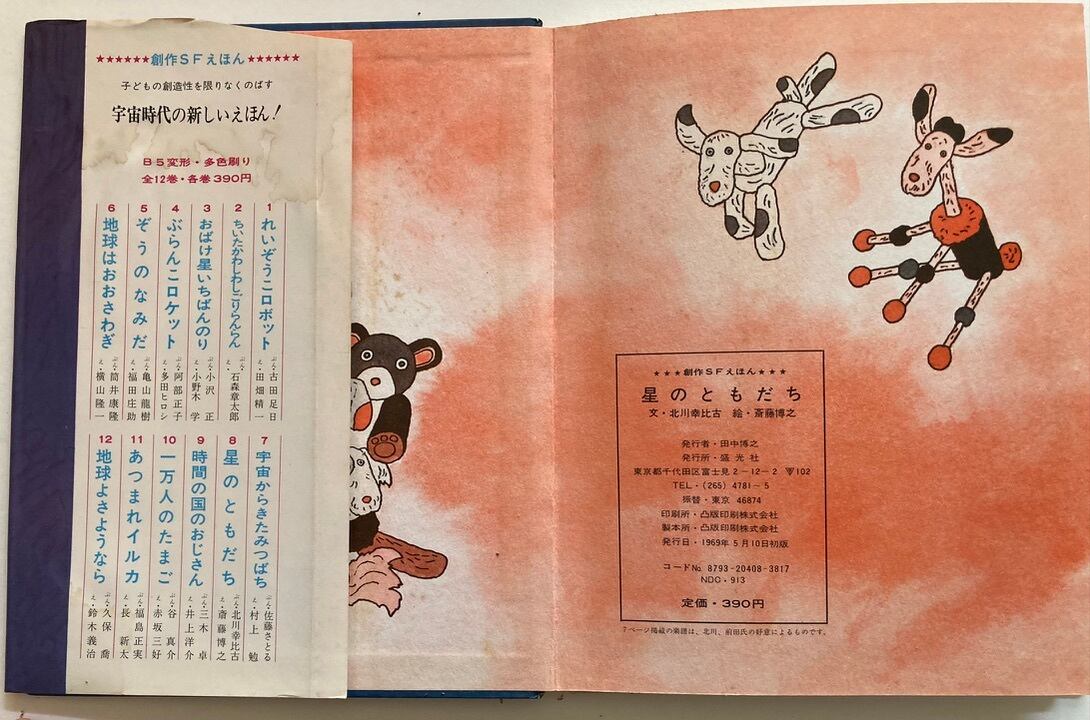 ★★★★★★創作SFえほん★★★★★★
子どもの創造性を限りなくのばす
宇宙時代の新しいえほん!
B5変形・多色刷り
全12巻・各巻390円
1 れいぞうこロボット ぶん・古田足日 え・田畑精一
2 ちいたかわしわしごりらんらん ぶん・え・石森章太郎
3 おばけ星いちばんのり ぶん・小沢正 え・小野木学
4 ぶらんこロケット ぶん・阿部正子 え・多田ヒロシ
5 ぞうのなみだ ぶん・亀山龍樹 え・福田庄助
6 地球はおおさわぎ ぶん・筒井康隆 え・横山隆一
7 宇宙からきたみつばち ぶん・佐藤さとる え・村上勉
8 星のともだち ぶん・北川幸比古 え・斎藤博之
9 時間の国のおじさん ぶん・三木卓 え・井上洋介
10 一万人のたまご ぶん・谷真介 え・赤坂三好
11 あつまれイルカ ぶん・福島正実 え・長新太
12 地球よさようなら ぶん・久保喬 え・鈴木義治
★★★創作SFえほん★★★
星のともだち
文・北川幸比古 絵・斎藤博之
発行者・田中博之
発行所・盛光社
東京都千代田区富士見2-12-2 〒102
TEL・(265) 4781~5
振替・東京 46874
印刷所・凸版印刷株式会社
製本所・凸版印刷株式会社
発行日・1969年5月10日初版
コードNo. 8793-20408-3817
NDC・913
定価・390円
7ページ掲載の楽譜は、北川、前田氏の好意によるものです。